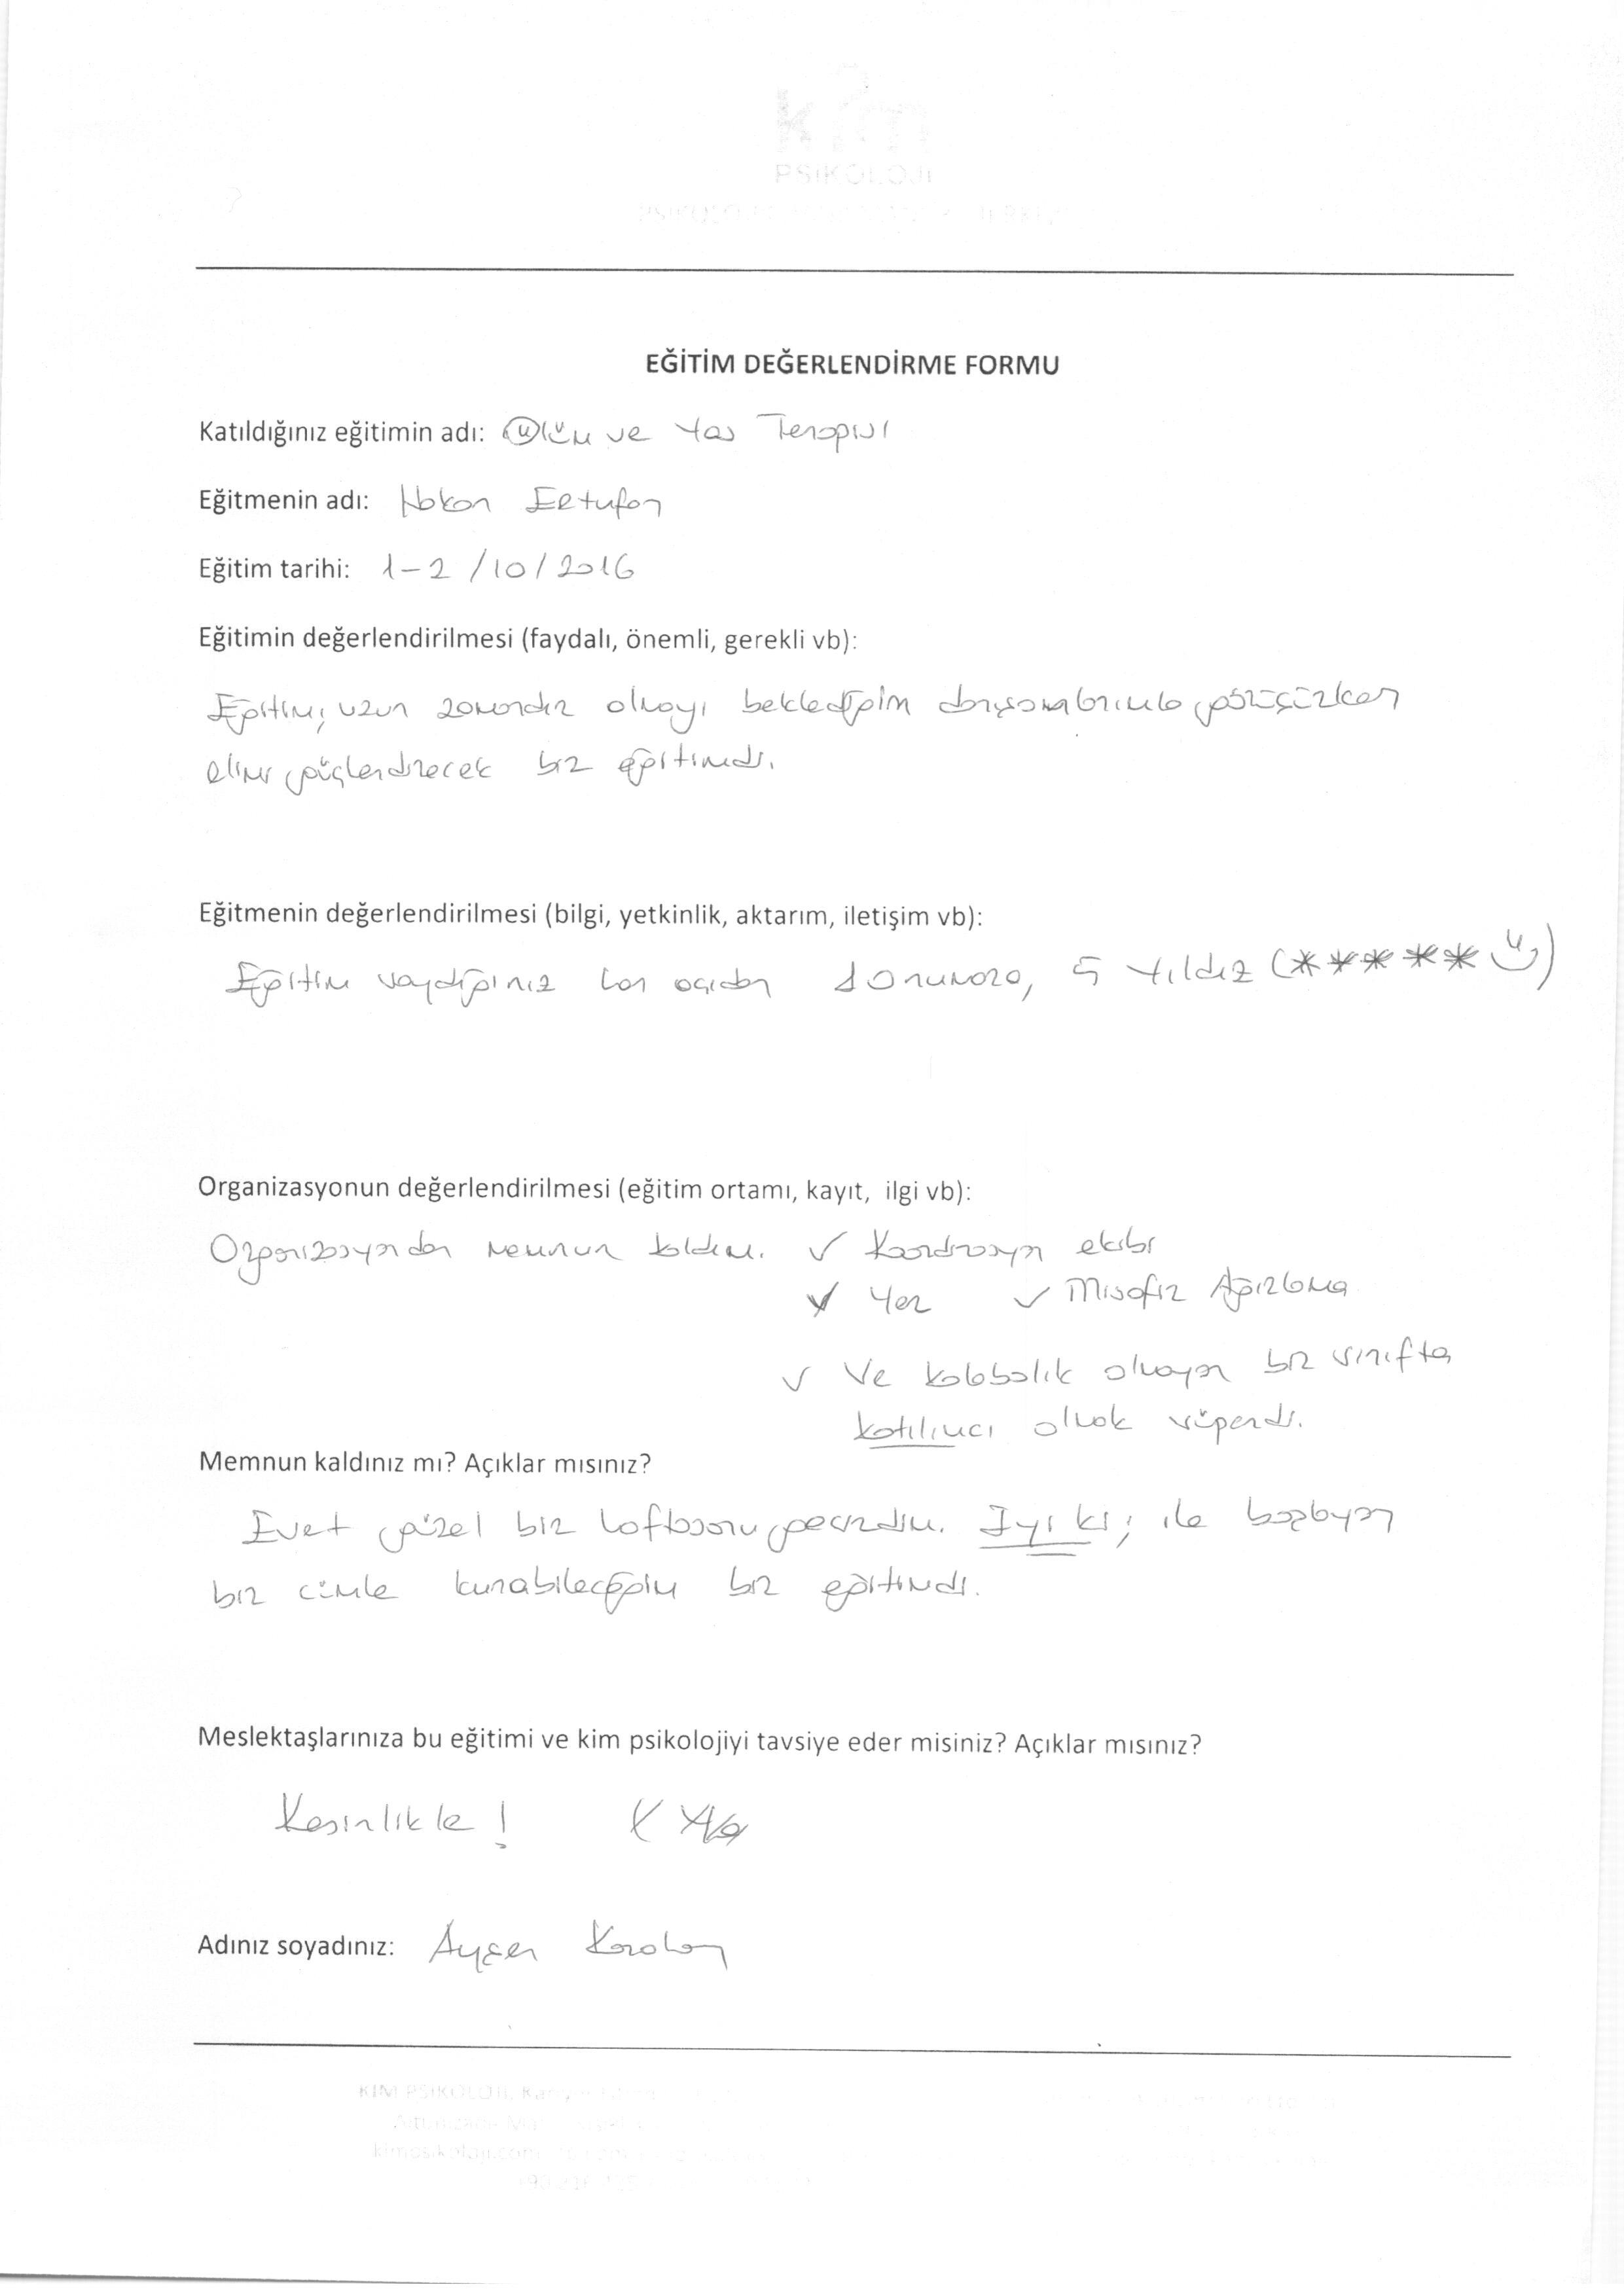 kim
PSİKOLOJİ
EĞİTİM DEĞERLENDİRME FORMU
Katıldığınız eğitimin adı: Ölüm ve Yas Terapisi
Eğitmenin adı: Hakan Ertufan
Eğitim tarihi: 1-2 /10/2016
Eğitimin değerlendirilmesi (faydalı, önemli, gerekli vb):
Eğitim; uzun zamandır almayı beklediğim danışmalarımla görüşürken
elimi güçlendirecek bir eğitimdi.
Eğitmenin değerlendirilmesi (bilgi, yetkinlik, aktarım, iletişim vb):
Eğitim her açıdan 10 numara, 5 Yıldız (*****)
Organizasyonun değerlendirilmesi (eğitim ortamı, kayıt, ilgi vb):
Organizasyondan memnun kaldım. ✓ Koordinasyon ekibi
✓ Yer ✓ Misafir Ağırlama
✓ Ve kalabalık olmayan bir sınıfta
katılımcı olmak süperdi.
Memnun kaldınız mı? Açıklar mısınız?
Evet güzel bir haftasonu geçirdim. İyi ki; ile başlayan
bir cümle kurabileceğim bir eğitimdi.
Meslektaşlarınıza bu eğitimi ve kim psikolojiyi tavsiye eder misiniz? Açıklar mısınız?
Kesinlikle!
Adınız soyadınız: Ayşen Karahan
KİM PSİKOLOJİ